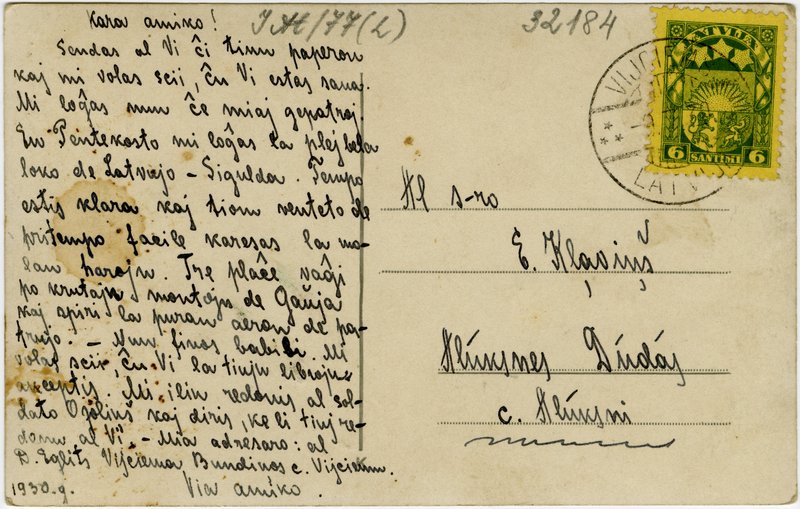 Kara amiko!
Sendas al Vi ĉi tiun paperon
kaj mi volas scii, ĉu Vi estas sana.
Mi loĝas nun ĉe miaj gepatroj.
En Pentekosto mi loĝas la plej bela
loko de Latvujo – Sigulda. Tempo
estis klara kaj tiom venteto de
printempo facile karesas la mo-
lan harojn. Tre plaĉe vaĝi
po krutajn montojn de Gauja
kaj spiri la puran aeron de pa-
trujo. – Nun finos babili. Mi
volas scii, ĉu Vi la tiujn librojn
akceptis. Mi ilin redonis al sol-
dato Ozoliņš kaj diris, ke li tiuj re-
donu al Vi. – Mia adresaro: al
D. Eglīts Vijciema Bundinos c. Vijciem.
1930.g. Via amiko.
IAt/77(L)
32184
LATVIJA
6 SANTIMI 6
VIJCIE
LATVIJA
Al s-ro
E. Kļaviņš
Alūksnes Dūdās
c. Alūksni